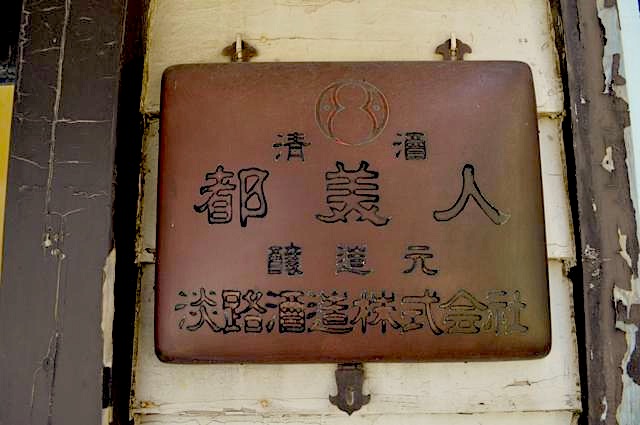 清酒
都美人
醸造元
淡路酒造株式会社